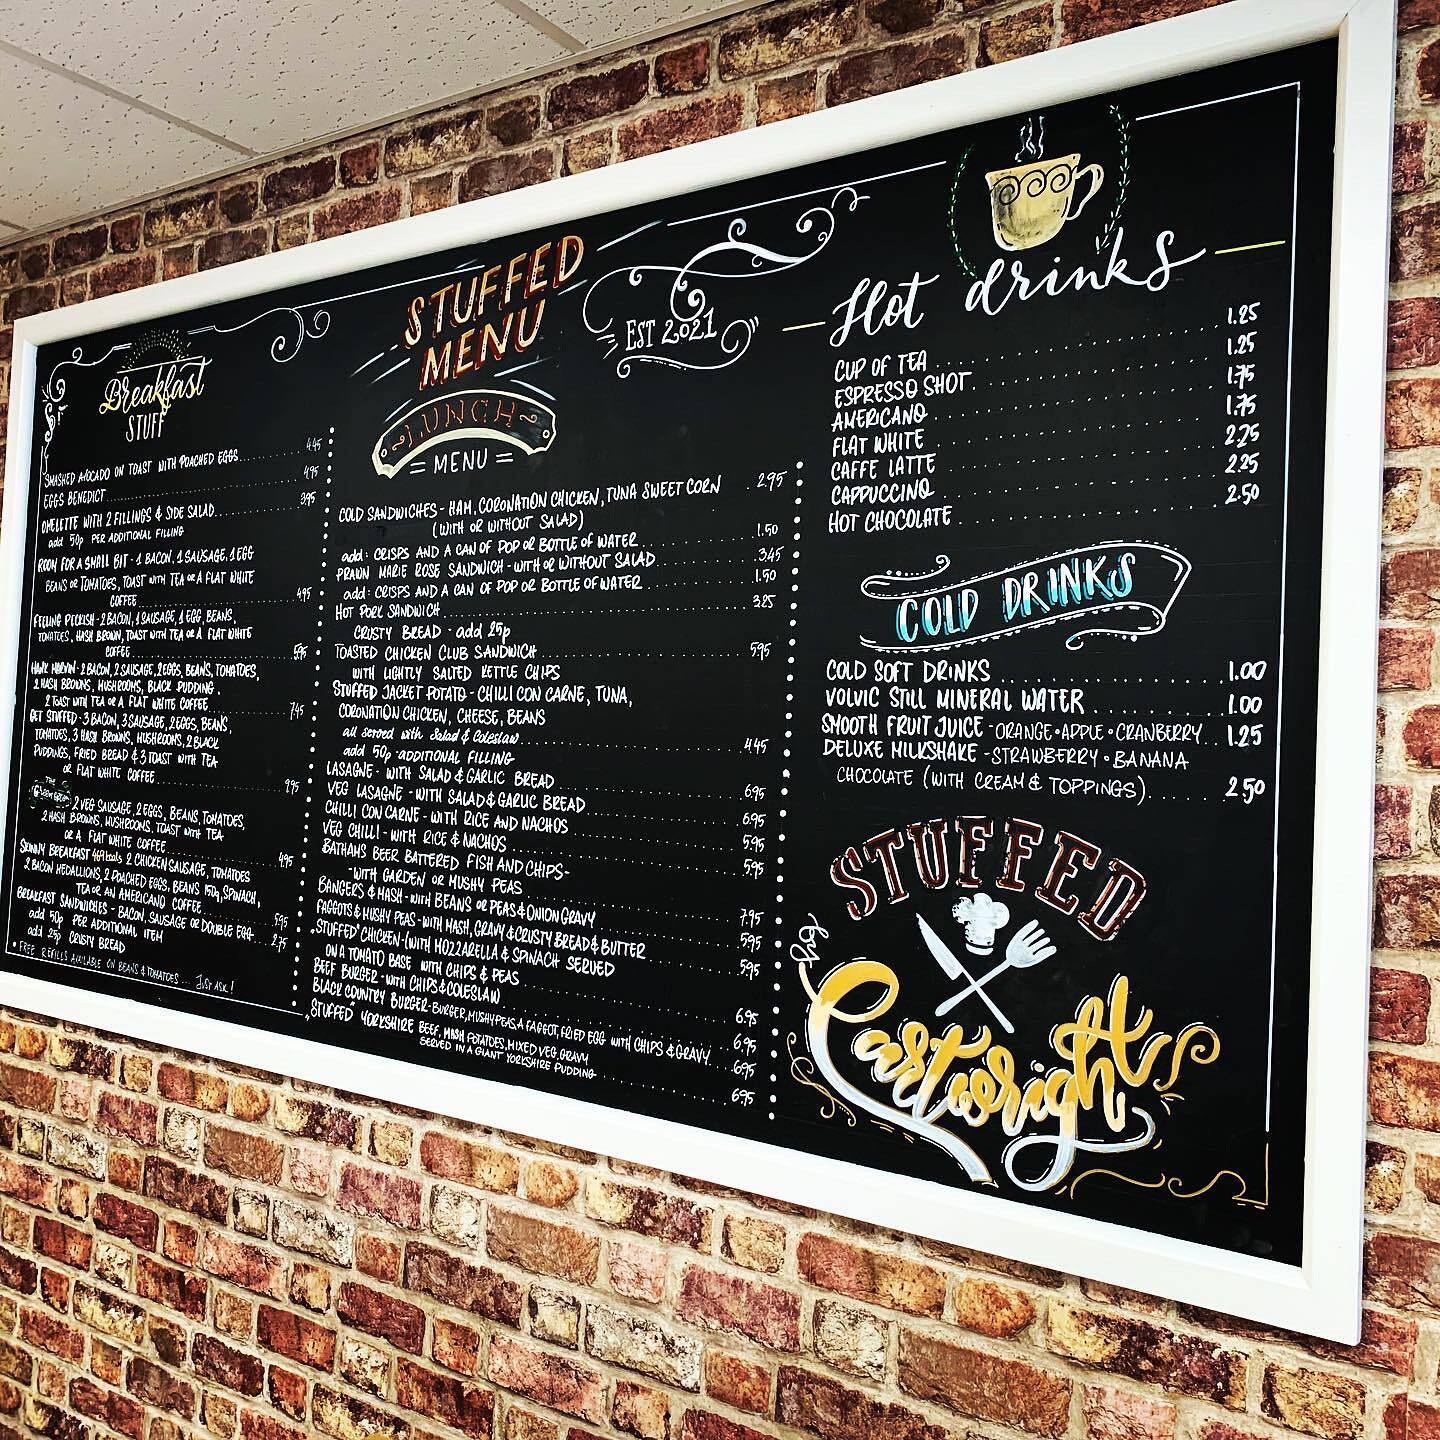 Breakfast
STUFF
SMASHED AVOCADO ON TOAST WITH POACHED EGGS 4.45
EGGS BENEDICT 4.95
OMELETTE WITH 2 FILLINGS & SIDE SALAD 3.95
add 50p PER ADDITIONAL FILLING
ROOM FOR A SMALL BIT - 1 BACON, 1 SAUSAGE, 1 EGG
BEANS OR TOMATOES, TOAST WITH TEA OR A FLAT WHITE
COFFEE 4.95
FEELING PECKISH - 2 BACON, 1 SAUSAGE, 1 EGG, BEANS,
TOMATOES, HASH BROWN, TOAST WITH TEA OR A FLAT WHITE
COFFEE 5.95
HANK MARVIN - 2 BACON, 2 SAUSAGE, 2 EGGS, BEANS, TOMATOES,
2 HASH BROWNS, MUSHROOMS, BLACK PUDDING,
2 TOAST WITH TEA OR A FLAT WHITE COFFEE 7.45
GET STUFFED - 3 BACON, 3 SAUSAGE, 2 EGGS, BEANS,
TOMATOES, 3 HASH BROWNS, MUSHROOMS, 2 BLACK
PUDDINGS, FRIED BREAD & 3 TOAST WITH TEA
OR FLAT WHITE COFFEE 9.95
THE
2 VEG SAUSAGE, 2 EGGS, BEANS, TOMATOES,
2 HASH BROWNS, MUSHROOMS, TOAST WITH TEA
OR A FLAT WHITE COFFEE 4.95
SKINNY BREAKFAST 2 CHICKEN SAUSAGE, TOMATOES
2 BACON MEDALLIONS, 2 POACHED EGGS, BEANS 150g, SPINACH,
TEA OR AN AMERICANO COFFEE 5.95
BREAKFAST SANDWICHES - BACON, SAUSAGE OR DOUBLE EGG 2.75
add 50p PER ADDITIONAL ITEM
add 25p CRUSTY BREAD
• FREE REFILLS AVAILABLE ON BEANS & TOMATOES... JUST ASK!
STUFFED
MENU
EST 2021
LUNCH
= MENU =
COLD SANDWICHES - HAM, CORONATION CHICKEN, TUNA SWEET CORN 2.95
(WITH OR WITHOUT SALAD)
add: CRISPS AND A CAN OF POP OR BOTTLE OF WATER 1.50
PRAWN MARIE ROSE SANDWICH - WITH OR WITHOUT SALAD 3.45
add: CRISPS AND A CAN OF POP OR BOTTLE OF WATER 1.50
HOT PORK SANDWICH 3.25
CRUSTY BREAD - add 25p
TOASTED CHICKEN CLUB SANDWICH 5.95
WITH LIGHTLY SALTED KETTLE CHIPS
STUFFED JACKET POTATO - CHILLI CON CARNE, TUNA,
CORONATION CHICKEN, CHEESE, BEANS
all served with Salad & Coleslaw 4.45
add 50p - ADDITIONAL FILLING
LASAGNE - WITH SALAD & GARLIC BREAD 6.95
VEG LASAGNE - WITH SALAD & GARLIC BREAD 6.95
CHILLI CON CARNE - WITH RICE AND NACHOS 5.95
VEG CHILLI - WITH RICE & NACHOS 5.95
BATHAMS BEER BATTERED FISH AND CHIPS -
- WITH GARDEN OR MUSHY PEAS 7.95
BANGERS & MASH - WITH BEANS OR PEAS & ONION GRAVY 5.95
FAGGOTS & MUSHY PEAS - WITH MASH, GRAVY & CRUSTY BREAD & BUTTER 5.95
"STUFFED" CHICKEN - (WITH MOZZARELLA & SPINACH SERVED
ON A TOMATO BASE WITH CHIPS & PEAS 6.95
BEEF BURGER - WITH CHIPS & COLESLAW 6.95
BLACK COUNTRY BURGER - BURGER, MUSHY PEAS, A FAGGOT, FRIED EGG WITH CHIPS & GRAVY 6.95
"STUFFED" YORKSHIRE BEEF, MASH POTATOES, MIXED VEG, GRAVY
SERVED IN A GIANT YORKSHIRE PUDDING 6.95
Hot drinks
CUP OF TEA 1.25
ESPRESSO SHOT 1.25
AMERICANO 1.75
FLAT WHITE 1.75
CAFFE LATTE 2.25
CAPPUCCINO 2.25
HOT CHOCOLATE 2.50
COLD DRINKS
COLD SOFT DRINKS 1.00
VOLVIC STILL MINERAL WATER 1.00
SMOOTH FRUIT JUICE - ORANGE • APPLE • CRANBERRY 1.25
DELUXE MILKSHAKE - STRAWBERRY • BANANA
CHOCOLATE (WITH CREAM & TOPPINGS) 2.50
STUFFED
by
Cartwright